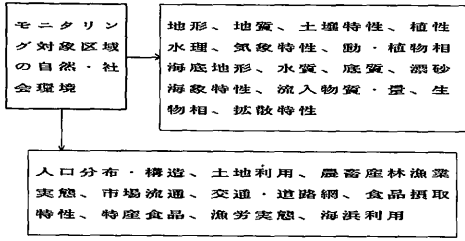 モニタリン
グ対象区域
の自然・社
会環境
地形、地質、土壌特性、植性
水理、気象特性、動・植物相
海底地形、水質、底質、漂砂
海象特性、流入物質・量、生
物相、拡散特性
人口分布・構造、土地利用、農畜産林漁業
実態、市場流通、交通・道路網、食品摂取
特性、特産食品、漁労実態、海浜利用